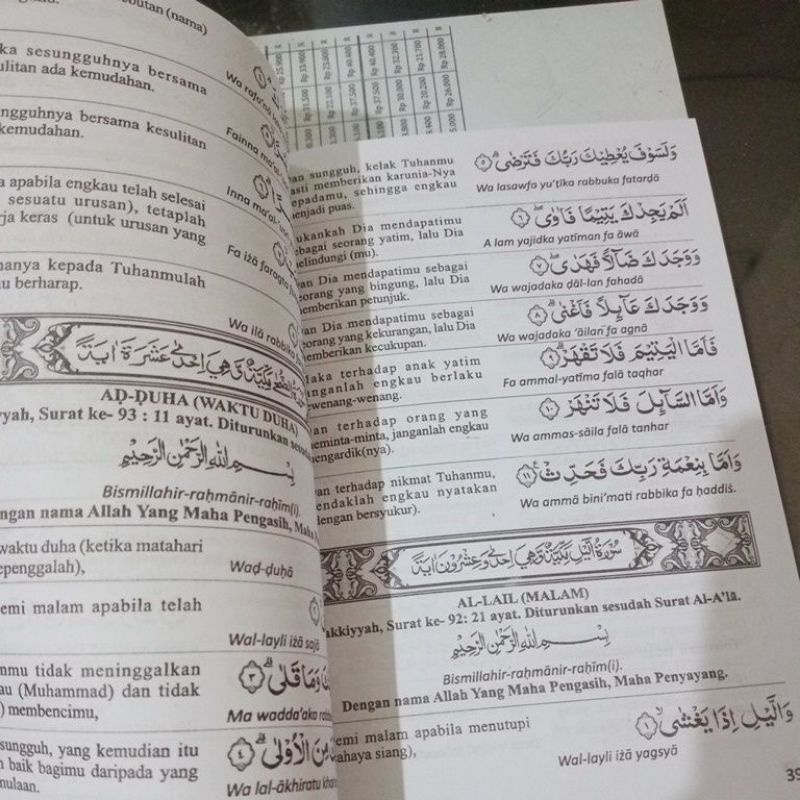 butan (nama)
ka sesungguhnya bersama
ulitan ada kemudahan.
Wa rafa'nā
ngguhnya bersama kesulitan
kemudahan.
Fainna ma'al-
a apabila engkau telah selesai
sesuatu urusan), tetaplah
rja keras (untuk urusan yang
Inna ma'al-
Fa iżā faragta
hanya kepada Tuhanmulah
u berharap.
Wa ilā rabbika
مكية وهي احدى عشرة آية
AḌ-ḌUHA (WAKTU DUHA)
yyah, Surat ke- 93 : 11 ayat. Diturunkan
بسم الله الرحمن الرحيم
Bismillahir-raḥmānir-raḥīm(i).
ngan nama Allah Yang Maha Pengasih,
waktu duha (ketika matahari
epenggalah),
Waḍ-ḍuḥā
emi malam apabila telah
Wal-layli iżā sajā
nmu tidak meninggalkan
au (Muhammad) dan tidak
) membencimu,
وَمَا قَلٰىۗ ٣
Ma wadda'aka
sungguh, yang kemudian itu
h baik bagimu daripada yang
mulaan.
مِنَ الْاُوْلٰىۗ ٤
Wa lal-ākhiratu
Rp 33.900 Rp 25.800 Rp 40.400 Rp 32.300 Rp 21.700 Rp 28.000
Rp 22.100 Rp 37.500 Rp 37.500 Rp 30.000 Rp 20.200 Rp 26.000
an sungguh, kelak Tuhanmu
asti memberikan karunia-Nya
epadamu, sehingga engkau
enjadi puas.
وَلَسَوْفَ يُعْطِيْكَ رَبُّكَ فَتَرْضٰىۗ ٥
Wa lasawfa yu'ṭika rabbuka fatarḍā
ukankah Dia mendapatimu
ebagai seorang yatim, lalu Dia
elindungi (mu).
اَلَمْ يَجِدْكَ يَتِيْمًا فَاٰوٰىۖ ٦
A lam yajidka yatīman fa āwā
an Dia mendapatimu sebagai
eorang yang bingung, lalu Dia
emberikan petunjuk.
وَوَجَدَكَ ضَاۤلًّا فَهَدٰىۖ ٧
Wa wajadaka ḍāl-lan fahadā
an Dia mendapatimu sebagai
eorang yang kekurangan, lalu Dia
emberikan kecukupan.
وَوَجَدَكَ عَاۤىِٕلًا فَاَغْنٰىۗ ٨
Wa wajadaka 'āilan fa agnā
aka terhadap anak yatim
anganlah engkau berlaku
ewenang-wenang.
فَاَمَّا الْيَتِيْمَ فَلَا تَقْهَرْۗ ٩
Fa ammal-yatīma falā taqhar
an terhadap orang yang
eminta-minta, janganlah engkau
engardik(nya).
وَاَمَّا السَّاۤىِٕلَ فَلَا تَنْهَرْۗ ١٠
Wa ammas-sāila falā tanhar
an terhadap nikmat Tuhanmu,
endaklah engkau nyatakan
dengan bersyukur).
وَاَمَّا بِنِعْمَةِ رَبِّكَ فَحَدِّثْ ࣖ ١١
Wa ammā bini'mati rabbika fa ḥaddiś.
سورة اليل مكية وهي احدى وعشرون آية
AL-LAIL (MALAM)
akkiyyah, Surat ke- 92: 21 ayat. Diturunkan sesudah Surat Al-A'lā.
بسم الله الرحمن الرحيم
Bismillahir-raḥmānir-raḥīm(i).
Dengan nama Allah Yang Maha Pengasih, Maha Penyayang.
emi malam apabila menutupi
ahaya siang),
وَالَّيْلِ اِذَا يَغْشٰىۙ ١
Wal-layli iżā yagsyā